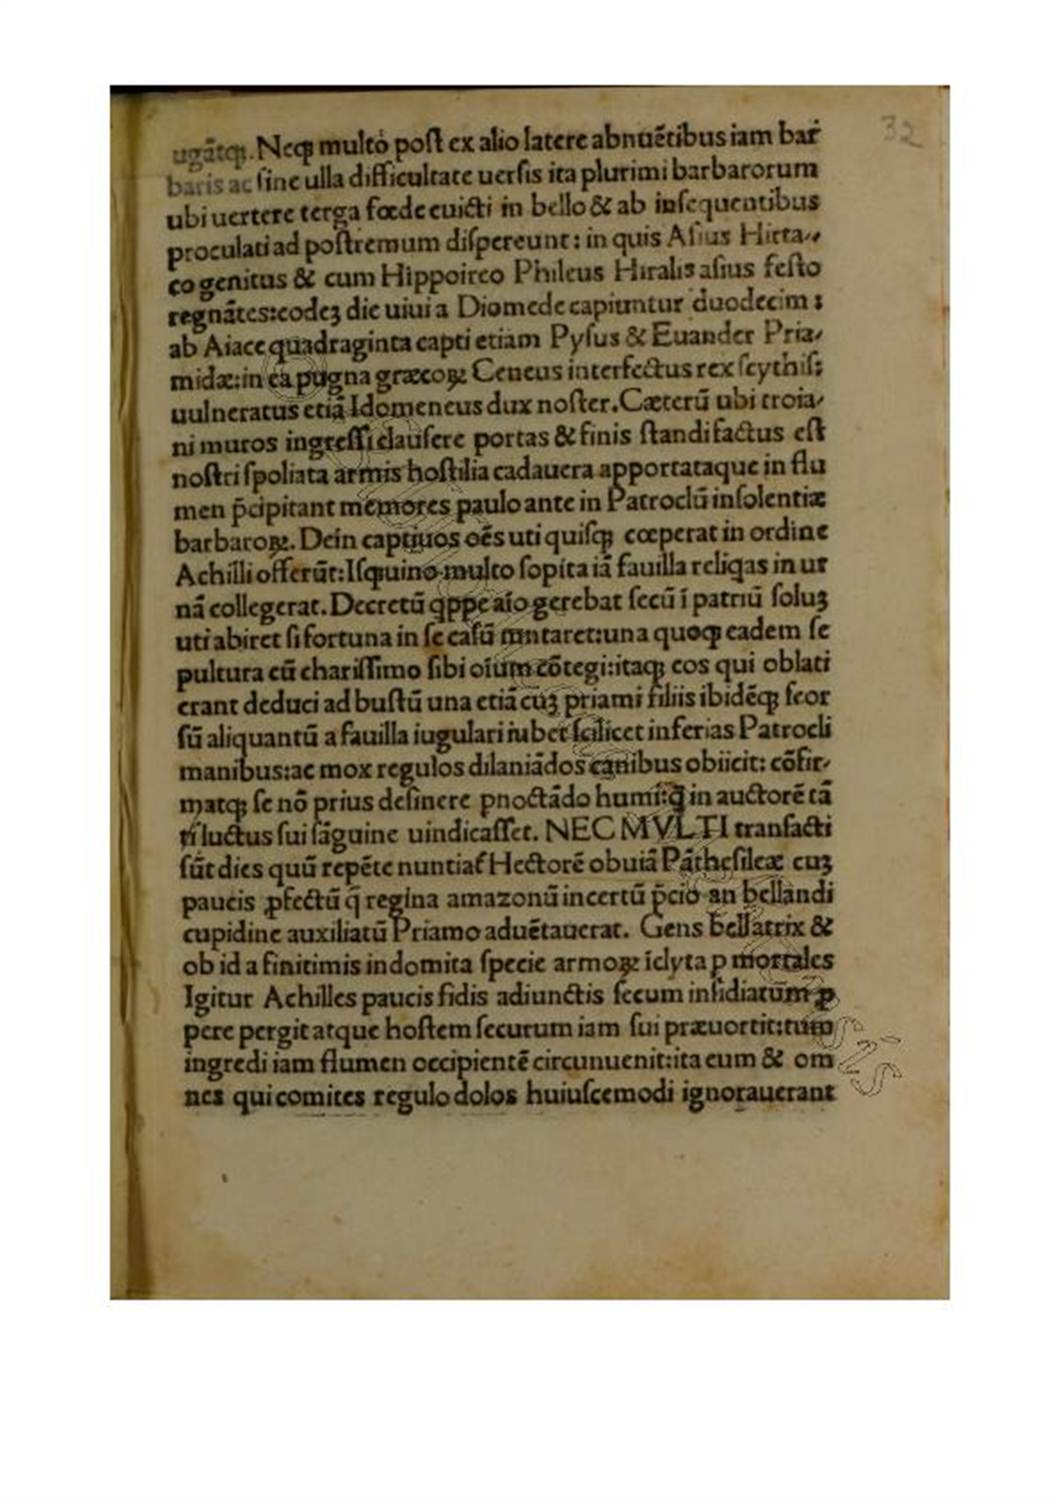 32
ugãtqꝫ. Neqꝫ multo post ex alio latere abnuẽtibus iam bar
baris ac ſine ulla difficultate uerſis ita plurimi barbarorum
ubi uertere terga fœde euicti in bello & ab inſequentibus
proculati ad poſtremum diſpereunt: in quis Aſius Hirta⸗
co genitus & cum Hippoirco Phileus Hiralis aſius ſeſto
regnãtes: eodeꝫ die uiui a Diomede capiuntur duodecim:
ab Aiace quadraginta capti etiam Pyſus & Euander Pria⸗
midæ: in ea pugna græcoꝝ Ceneus interfectus rex ſcythiſ:
uulneratus etiã Idomeneus dux noſter. Cæterũ ubi troia⸗
ni muros ingreſſi clauſere portas & finis ſtandi factus eſt
noſtri ſpoliata armis hoſtilia cadauera apportataque in flu
men p̃cipitant memores paulo ante in Patroclũ inſolentiæ
barbaroꝝ. Dein captiuos oẽs uti quiſqꝫ cœperat in ordine
Achilli offerũt: Iſqꝫ uino multo ſopita iã fauilla reliq̃as in ur
nã collegerat. Decretũ q̃ppe aĩo gerebat ſecũ ĩ patriũ ſoluꝫ
uti abiret ſi fortuna in ſe caſũ mutaret: una quoqꝫ eadem ſe
pultura cũ chariſſimo ſibi oĩum cõtegi: itaqꝫ eos qui oblati
erant deduci ad buſtũ una etiã cuꝫ priami filiis ibidẽqꝫ ſeor
ſũ aliquantũ a fauilla iugulari iubet ſcilicet inferias Patrocli
manibus: ac mox regulos dilaniãdos canibus obiicit: cõfir⸗
matqꝫ ſe nõ prius deſinere pnoctãdo humi: q̃ in auctorẽ tã
ti luctus ſui ſãguine uindicaſſet. NEC MVLTI tranſacti
ſũt dies quũ repẽte nuntiat̃ Hectorẽ obuiã Pãtheſileæ cuꝫ
paucis ꝓfectũ q̃ regina amazonũ incertũ p̃cio an bellandi
cupidine auxiliatũ Priamo aduẽtauerat. Gens bellatrix &
ob id a finitimis indomita ſpecie armoꝝ ĩclyta p mortales
Igitur Achilles paucis fidis adiunctis ſecum inſidiatum ꝓ
pere pergit atque hoſtem ſecurum iam ſui præuortit: tum
ingredi iam flumen occipientẽ circunuenit: ita eum & om
nes qui comites regulo dolos huiuſcemodi ignorauerant